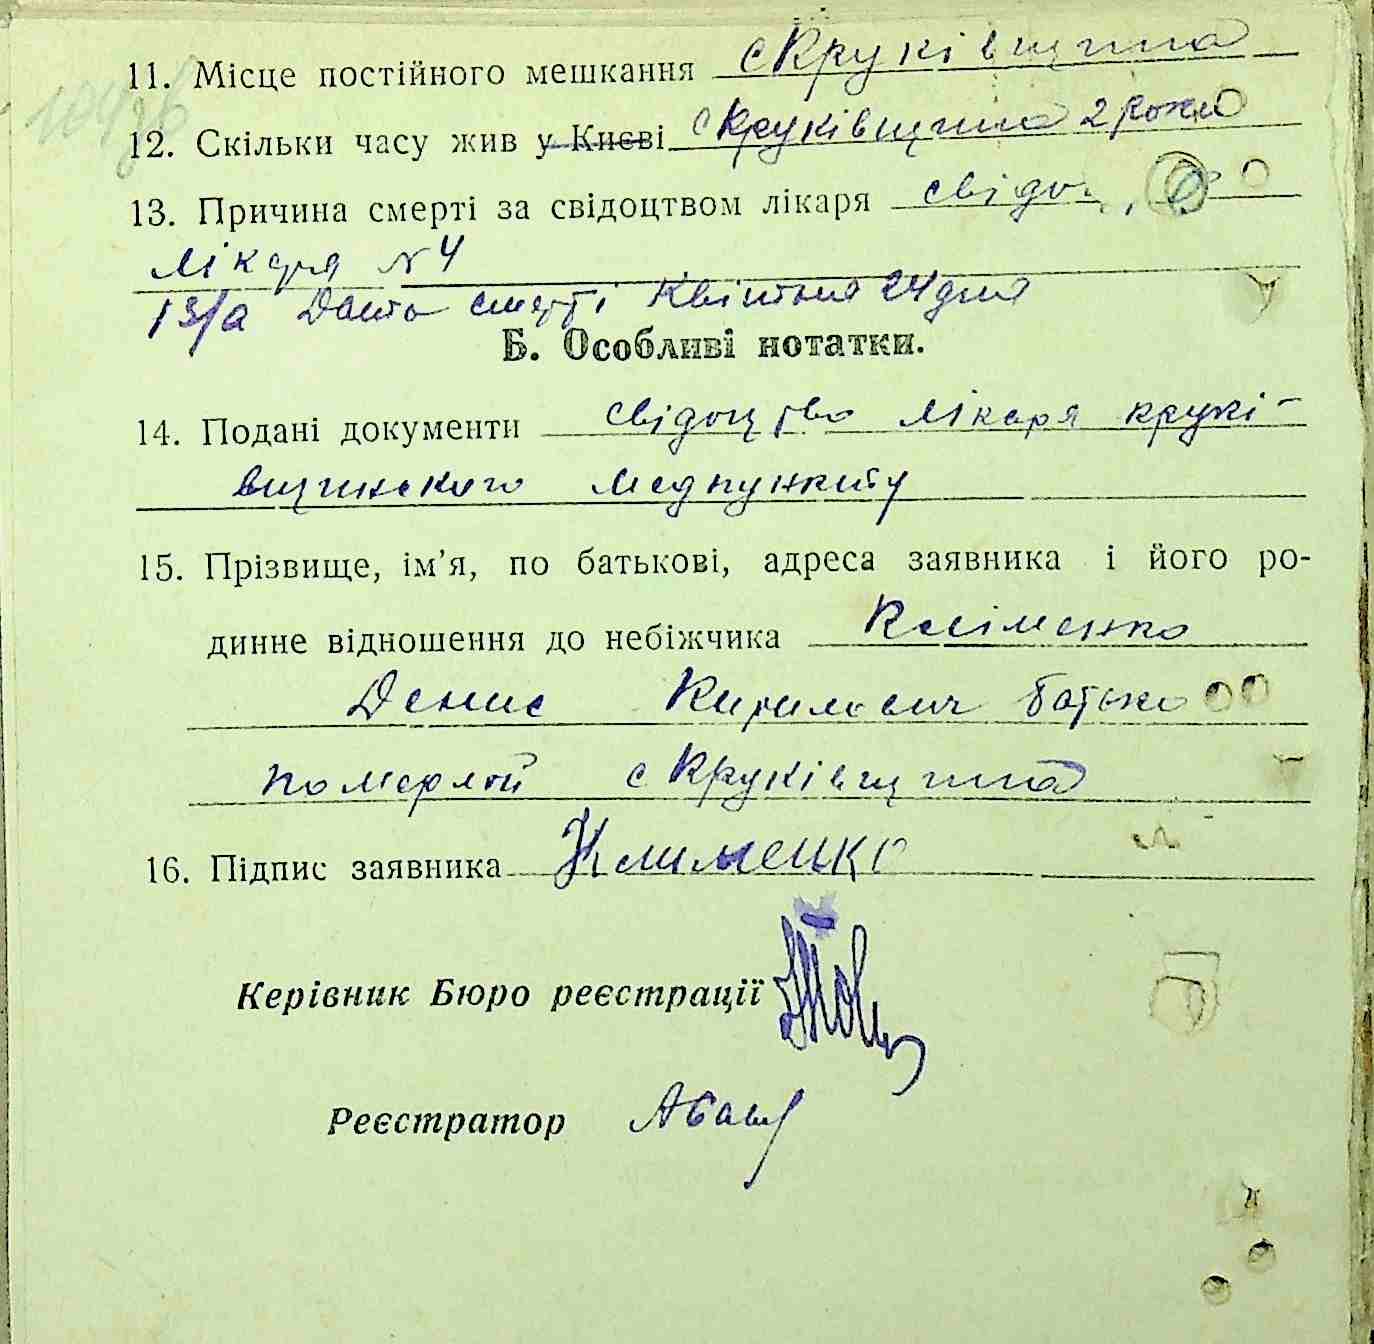 11. Місце постійного мешкання с Круківщина
12. Скільки часу жив у Києві с Круківщина 2 роки
13. Причина смерті за свідоцтвом лікаря свідо
лікаря № 4
13/а Дата смерті Квітня 24 дня
Б. Особливі нотатки.
14. Подані документи свідоцтво лікаря крукі-
вщинского медпункту
15. Прізвище, ім’я, по батькові, адреса заявника і його ро-
динне відношення до небіжчика Кліменко
Денис Кирилович батько
померлой с Круківщина
16. Підпис заявника Клименко
Керівник Бюро реєстрації
Реєстратор